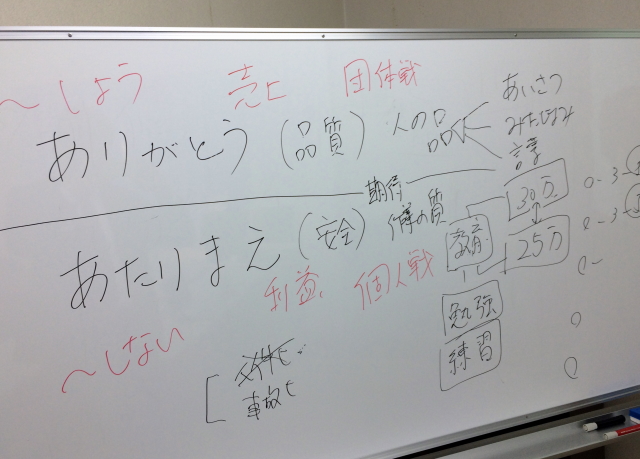 〜しよう 売上 団体戦
ありがとう (品質) 人の品
あいさつ
みだしなみ
言葉
期待
30万
0-3-1
あたりまえ (安全) 作業の質
教育
25万
0-3-1
利益、個人戦
〜しない
勉強
練習
事故ヒ